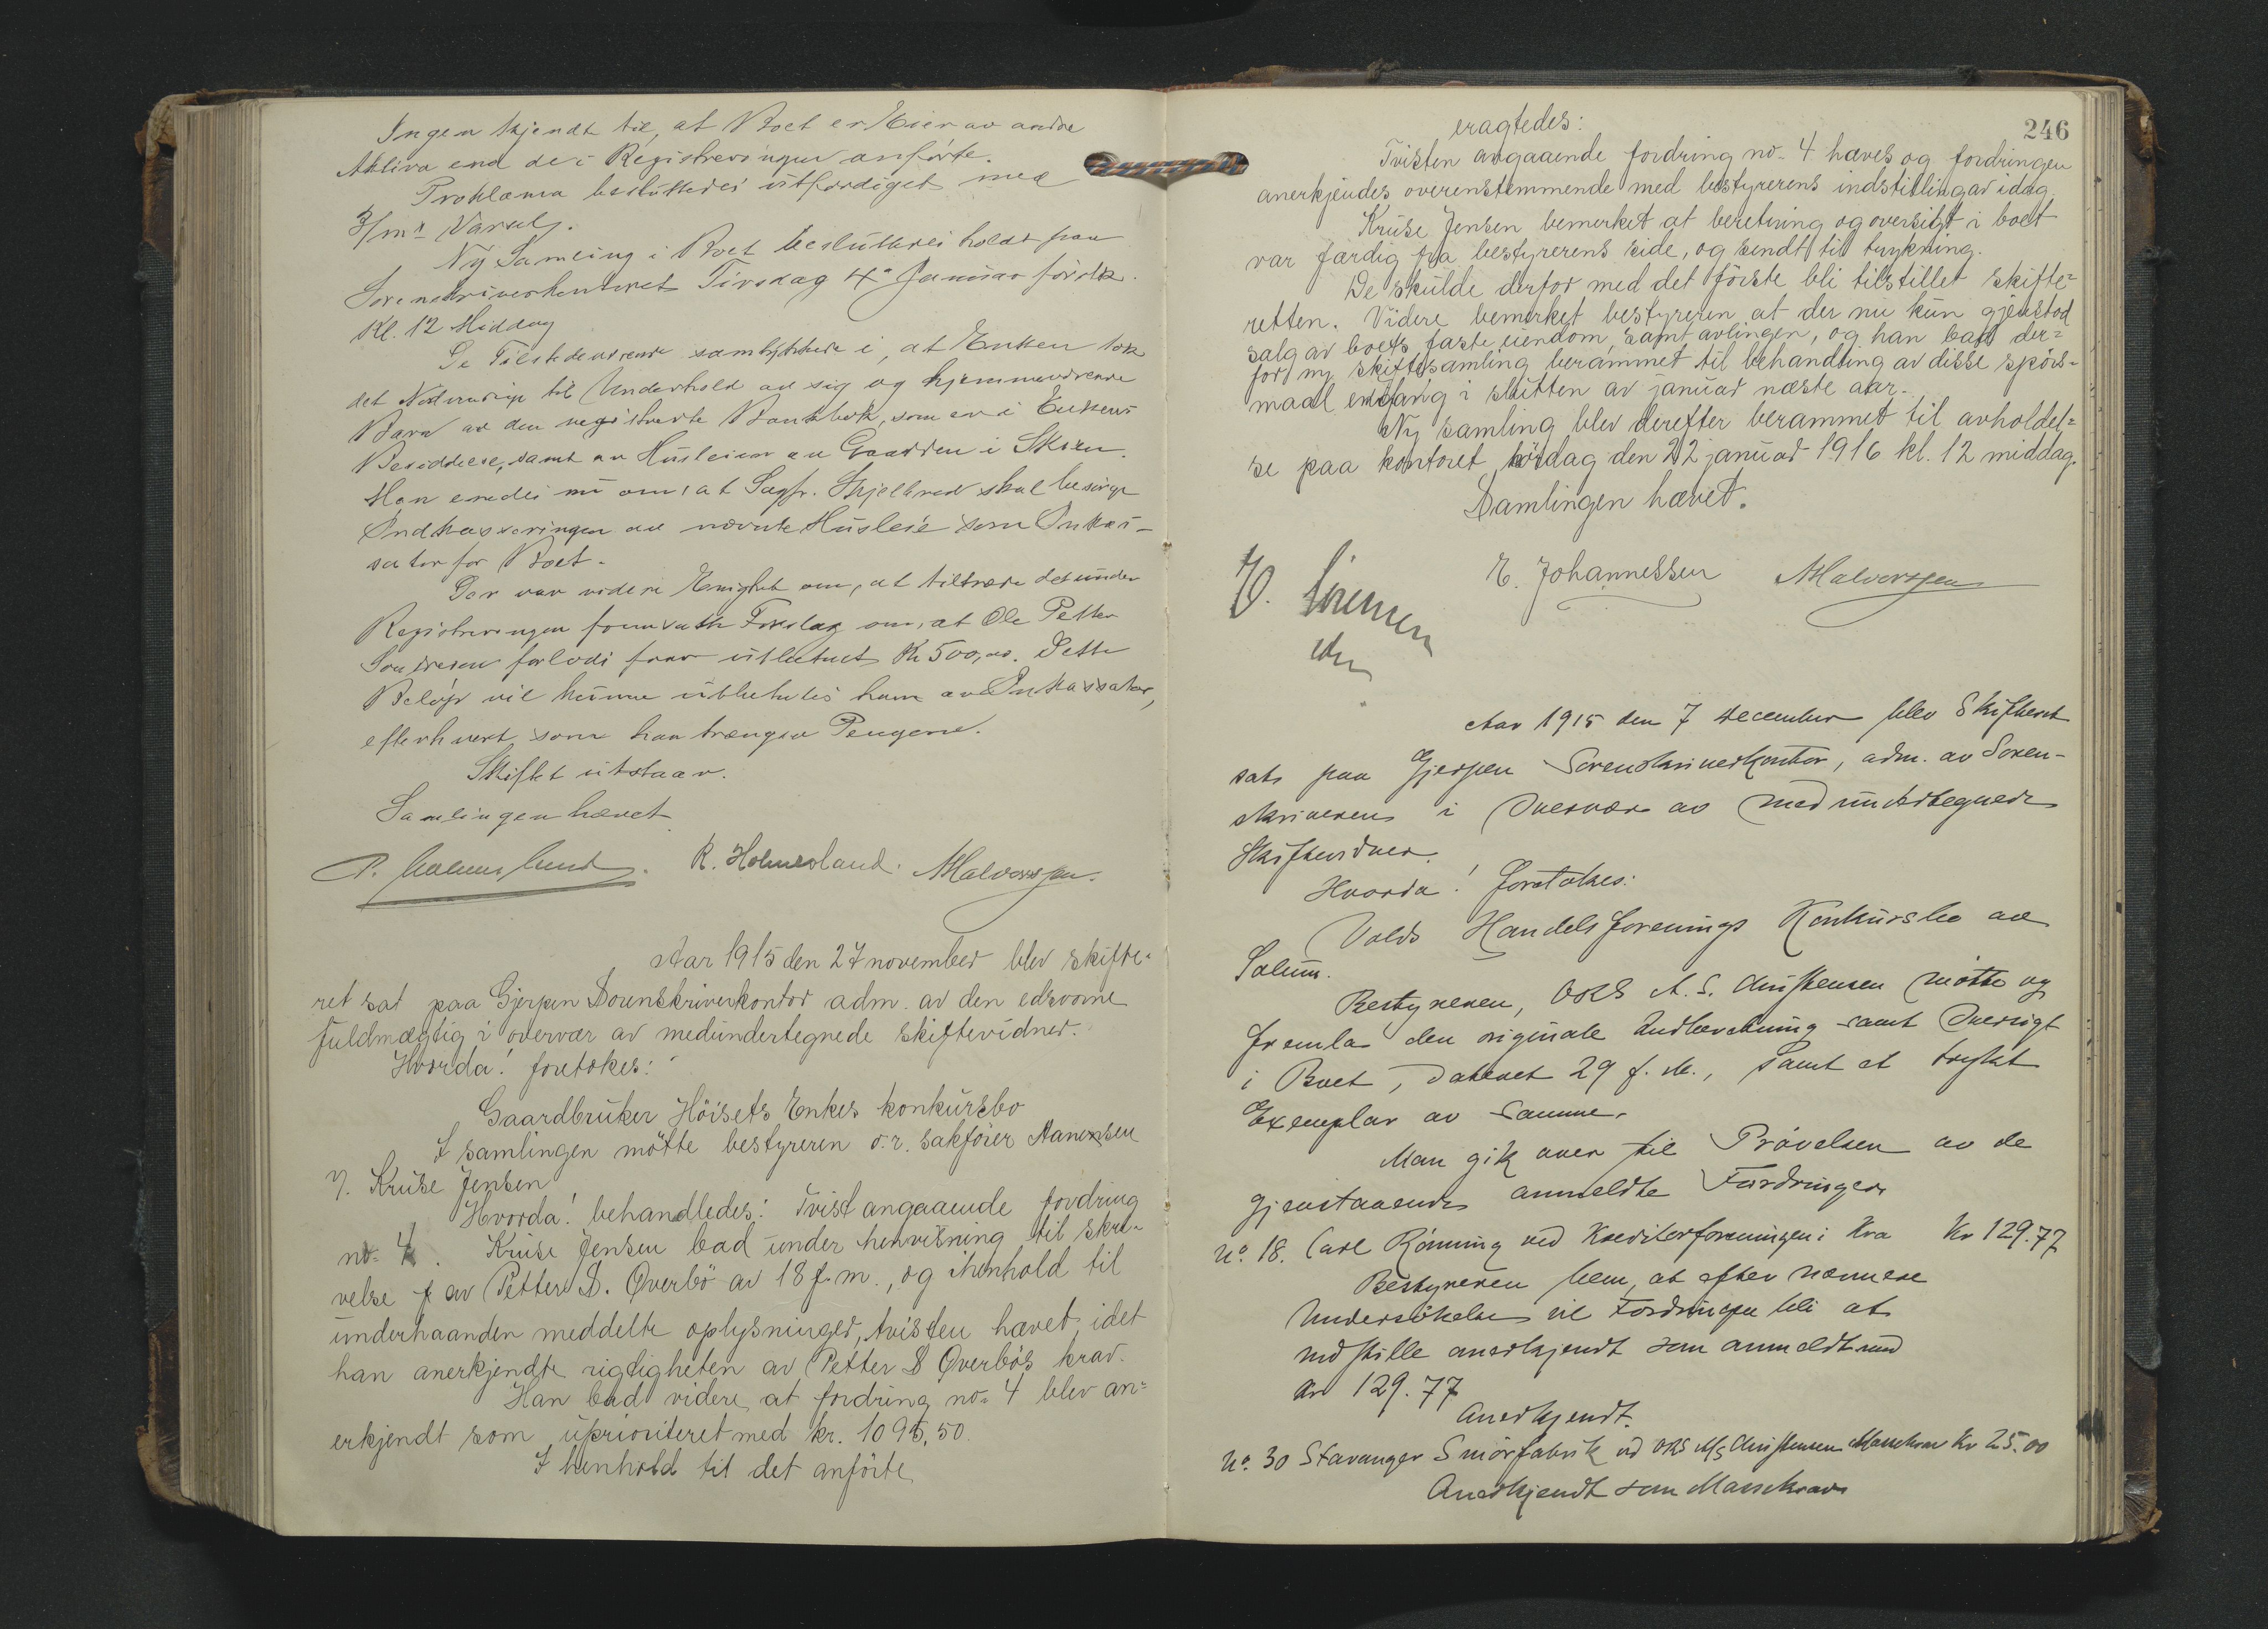 Ingen kjendt til, at Boet er Eier av andre
Aktiva end de i Registreringen anførte.
Proklama besluttedes utfærdiget med
3/mrs Varsel.
Ny Samling i Boet besluttedes holdt paa
Sorenskriverkontoret Tirsdag 4de Januar førstk.
Kl. 12 Middag
De Tilstedeværende samtykkede i, at Enken tok
det Nødvendige til Underhold av sig og hjemmeværende
Barn av den registrerte Bankbok, som er i Enkens
Besiddelse, samt av Husleien av Gaarden i Skien.
Man enedes nu om, at Sagf. Skjelbred skal besørge
Indkasseringen av nævnte Husleie som Inkas-
sator for Boet.
Der var videre Enighet om, at tiltræde det under
Registreringen fremsatte Forslag om, at Ole Petter
forlods faar utbetalt Kr 500,00. Dette
Beløp vil kunne utbetales ham av Inkassator,
efterhvert som han trænger Pengene.
Skiftet utstaar.
Samlingen hævet
R. Holmesland. AHalvorsen.
Aar 1915 den 27 november blev skifte-
ret sat paa Gjerpen Sorenskriverkontor adm. av den edsvorne
fuldmægtig i overvær av medundertegnede skiftevidner.
Hvorda! foretokes:
Gaardbruker Höisets Enkes konkursbo
I samlingen mötte bestyreren o.r. sakförer Aanensen
v. Kruse Jensen
Hvorda! behandledes: Tvist angaaende fordring
no. 4. Kruse Jensen bad under henvisning til skri-
velse f av Petter S. Överbö av 18 f.m., og ihenhold til
underhaanden meddelte oplysninger, tvisten hævet, idet
han anerkjendte rigtigheten av Petter S Överbös krav.
Han bad videre, at fordring no. 4 blev an-
erkjendt som uprioriteret med kr. 1095,50.
I henhold til det anförte
246
eragtedes:
Tvisten angaaende fordring no. 4 hæves og fordringen
anerkjendes overenstemmende med bestyrerens indstilling av idag.
Kruse Jensen bemerket at beretning og oversigt i boet
var færdig fra bestyrerens side, og sendt til trykning.
De skulde derfor med det förste bli tilstillet skifte-
retten. Videre bemerket bestyreren at der nu kun gjenstod
salg av boets faste eiendom, samt avlingen, og han bad der-
for ny skiftesamling berammet til behandling av disse spörs-
maal engang i slutten av januar næste aar.
Ny samling blev derefter berammet til avholdel-
se paa kontoret lördag den 22 januar 1916 kl. 12 middag.
Samlingen hævet.
E. Johannessen AHalvorsen
Aar 1915 den 7 december blev Skifteret
sat paa Gjerpen Sorenskriverkontor, adm. av Soren-
skriveren i Overvær av medundertegnede
Skiftevidner.
Hvorda! foretokes:
Volds Handelsforenings Konkursbo av
Solum.
Bestyreren, ORS A. S. Christensen mötte og
fremla den originale Indberetning samt Oversigt
i Boet, dateret 29 f. M., samt et trykt
Exemplar av samme.
Man gik over til Prövelsen av de
gjenstaaende anmeldte Fordringer
No. 18. Carl Rönning ved Kreditorforeningen i Kra Kr 129.77
Bestyreren bem, at efter nærmere
Undersökelse vil Fordringen bli at
indstille anerkjendt som anmeldt med
Kr 129.77
Anerkjendt.
No. 30 Stavanger Smörfabrik vd ORS A/S Christensen Massekrav Kr 25.00
Anerkjendt som Massekrav